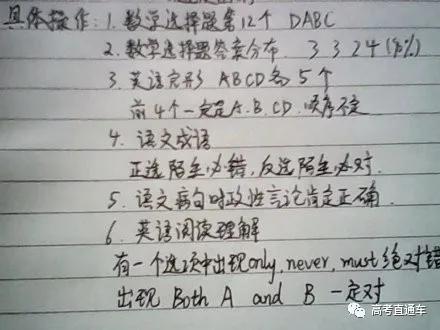 具体操作: 1. 数学选择题第12个 DABC
2. 数学选择题答案分布. 3 3 2 4 (90%)
3. 英语完形 ABCD各5个
前4个一定是A.B.CD.顺序不定
4. 语文成语
正选陌生必错,反选陌生必对.
5. 语文病句时政性言论肯定正确.
6. 英语阅读理解
有一个选项中出现only, never, must 绝对错
出现 Both A and B 一定对
高考直通车